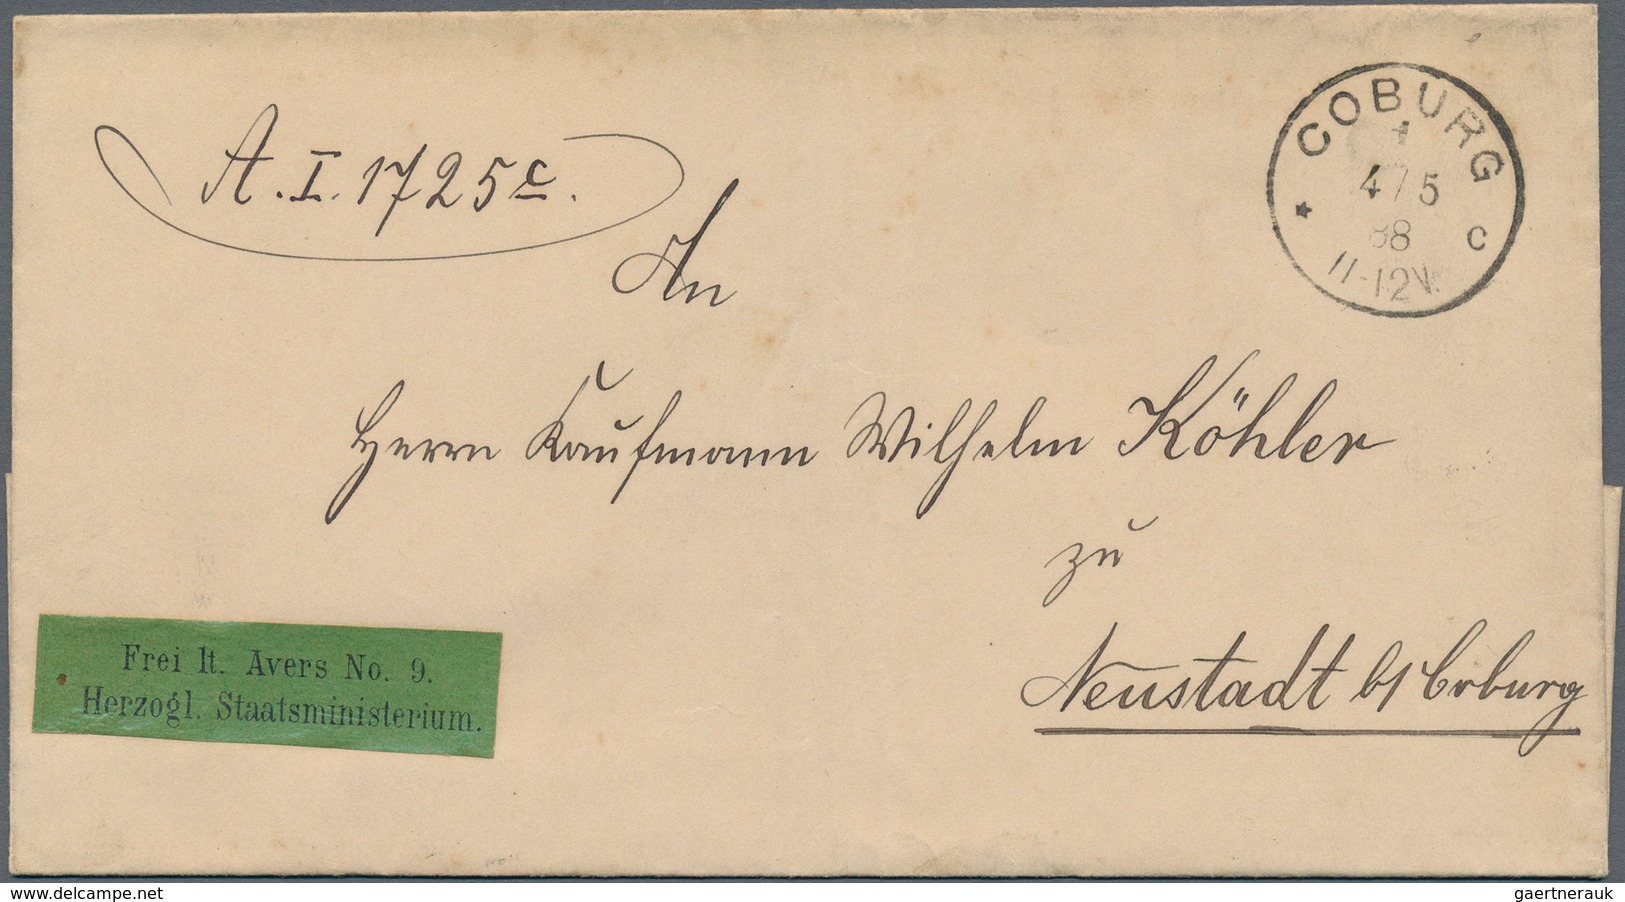 A. I. 1725c.
COBURG
1
4/5
88
11-12V.
* c
An
Herrn Kaufmann Wilhelm Köhler
zu
Neustadt b/Coburg
Frei lt. Avers No. 9.
Herzogl. Staatsministerium.
www.delcampe.net
gaertnerauk